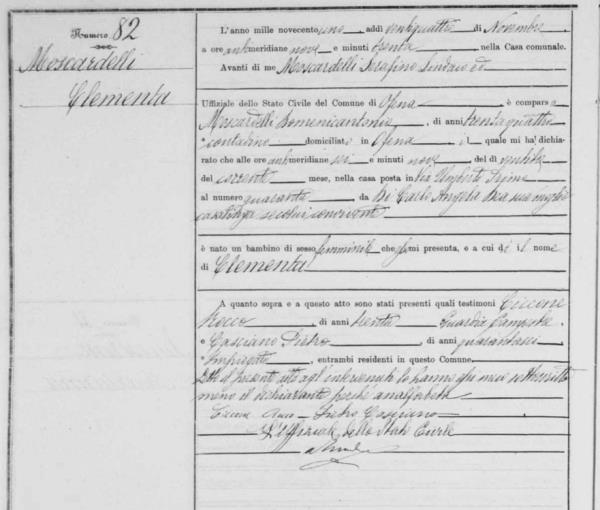 Numero 82
Moscardelli
Clementa
L'anno mille novecento uno, addì ventiquattro di Novembre
a ore antimeridiane nove e minuti trenta, nella Casa comunale.
Avanti di me Moscardelli Serafino Sindaco ed
Uffiziale dello Stato Civile del Comune di Ofena, è comparso
Moscardelli Domenicantonio, di anni trentaquattro
contadino domiciliato in Ofena, il quale mi ha dichia-
rato che alle ore antimeridiane sei e minuti nove, del dì
del corrente mese, nella casa posta in Via Umberto Primo
al numero quaranta, da Di Carlo Angela sua moglie
casalinga seco lui convivente
è nato un bambino di sesso femminile che mi presenta, e a cui dà il nome
di Clementa
A quanto sopra e a questo atto sono stati presenti quali testimoni Ciccone
Rocco, di anni trenta Guardia Campestre
e Casciano Pietro, di anni
Impiegato, entrambi residenti in questo Comune.
il presente atto agl'intervenuti lo hanno sottoscritto
meno il dichiarante perché analfabeta
Pietro Casciano
L'Uffiziale dello Stato Civile